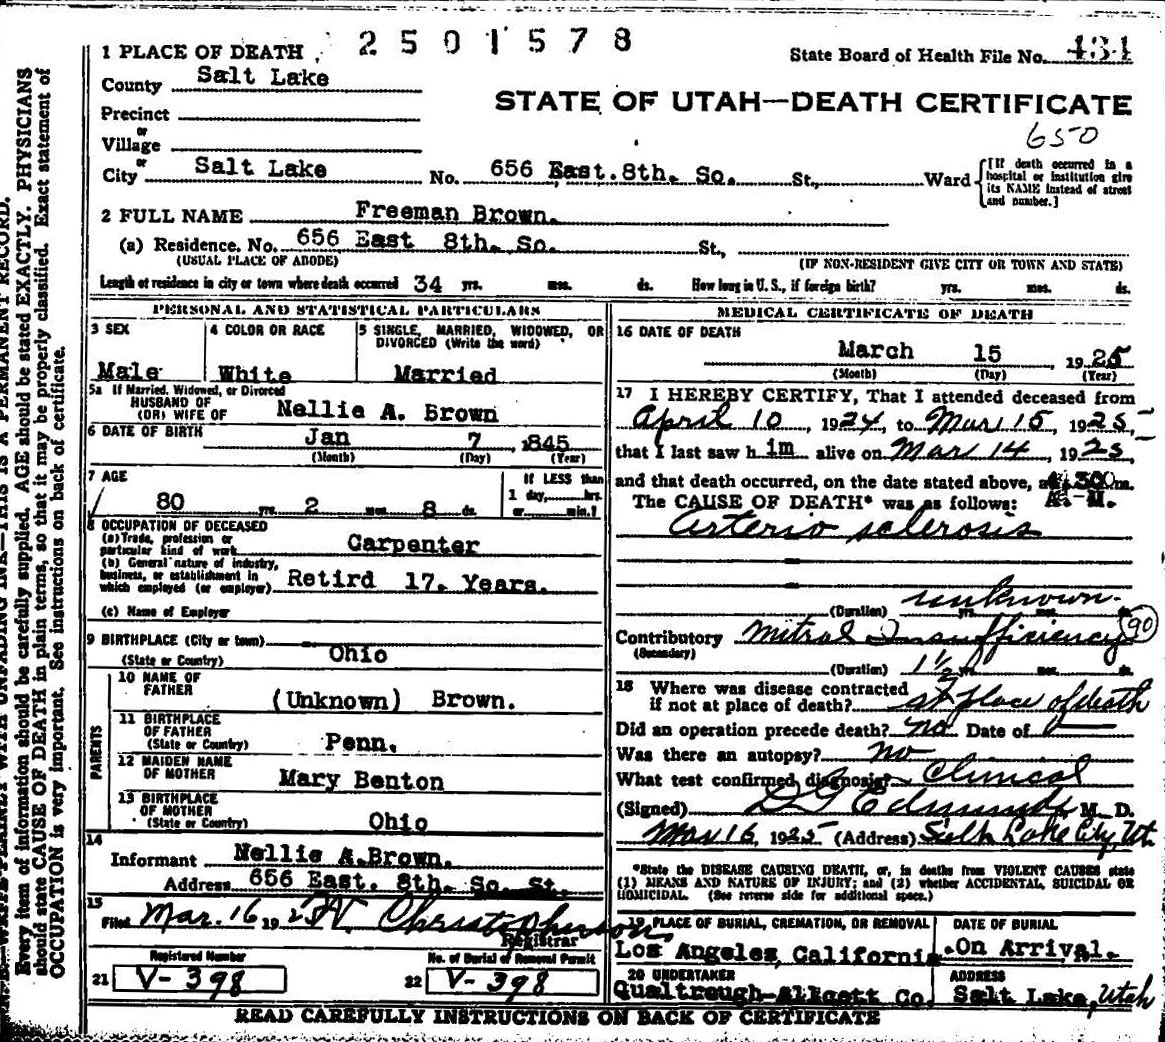 2501578
State Board of Health File No. 434
STATE OF UTAH—DEATH CERTIFICATE
650
1 PLACE OF DEATH
County Salt Lake
Precinct
or
Village
or
City Salt Lake No. 656 East. 8th. So. St., Ward
[If death occurred in a hospital or institution give its NAME instead of street and number.]
2 FULL NAME Freeman Brown.
(a) Residence. No. 656 East 8th. So. St,
(USUAL PLACE OF ABODE) (IF NON-RESIDENT GIVE CITY OR TOWN AND STATE)
Length of residence in city or town where death occurred 34 yrs. mos. ds. How long in U. S., if foreign birth? yrs. mos. ds.
PERSONAL AND STATISTICAL PARTICULARS
3 SEX
Male
4 COLOR OR RACE
White
5 SINGLE, MARRIED, WIDOWED, OR
DIVORCED (Write the word)
Married
5a If Married, Widowed, or Divorced
HUSBAND OF
(OR) WIFE OF Nellie A. Brown
6 DATE OF BIRTH Jan 7, 1845
(Month) (Day) (Year)
7 AGE
80 yrs. 2 mos. 8 ds.
If LESS than
1 day, hrs.
or min.?
8 OCCUPATION OF DECEASED
(a) Trade, profession or
particular kind of work Carpenter
(b) General nature of industry,
business, or establishment in
which employed (or employer) Retird 17. Years.
(c) Name of Employer
9 BIRTHPLACE (City or town)
(State or Country) Ohio
PARENTS
10 NAME OF
FATHER (Unknown) Brown.
11 BIRTHPLACE
OF FATHER
(State or Country) Penn.
12 MAIDEN NAME
OF MOTHER Mary Benton
13 BIRTHPLACE
OF MOTHER
(State or Country) Ohio
14
Informant Nellie A. Brown.
Address 656 East. 8th. So. St.
15
Filed Mar. 16 192
Registrar
Registered Number
21 V-398
No. of Burial of Removal Permit
22 V-398
MEDICAL CERTIFICATE OF DEATH
16 DATE OF DEATH
March 15 1925
(Month) (Day) (Year)
17 I HEREBY CERTIFY, That I attended deceased from
April 10, 1924, to Mar 15, 1925,
that I last saw him alive on Mar 14, 1925,
and that death occurred, on the date stated above, at m.
The CAUSE OF DEATH* was as follows: A. M.
Arterio sclerosis
unknown.
(Duration) yrs. mos. ds.
Contributory Mitral Insufficiency 90
(Secondary)
(Duration) 1 1/2 mos. ds.
18 Where was disease contracted
if not at place of death? at place of death
Did an operation precede death? no Date of
Was there an autopsy? no
What test confirmed diagnosis? Clinical
(Signed) Edmunds M. D.
Mar 16 1925 (Address) Salt Lake City, Ut.
*State the DISEASE CAUSING DEATH, or, in deaths from VIOLENT CAUSES state
(1) MEANS AND NATURE OF INJURY; and (2) whether ACCIDENTAL, SUICIDAL OR
HOMICIDAL. (See reverse side for additional space.)
19 PLACE OF BURIAL, CREMATION, OR REMOVAL
Los Angeles, California
DATE OF BURIAL
.On Arrival.
20 UNDERTAKER
Qualtrough-Allcott Co.
ADDRESS
Salt Lake, Utah
READ CAREFULLY INSTRUCTIONS ON BACK OF CERTIFICATE
THIS IS A PERMANENT RECORD.
Every item of information should be carefully supplied. AGE should be stated EXACTLY. PHYSICIANS
should state CAUSE OF DEATH in plain terms, so that it may be properly classified. Exact statement of
OCCUPATION is very important. See instructions on back of certificate.